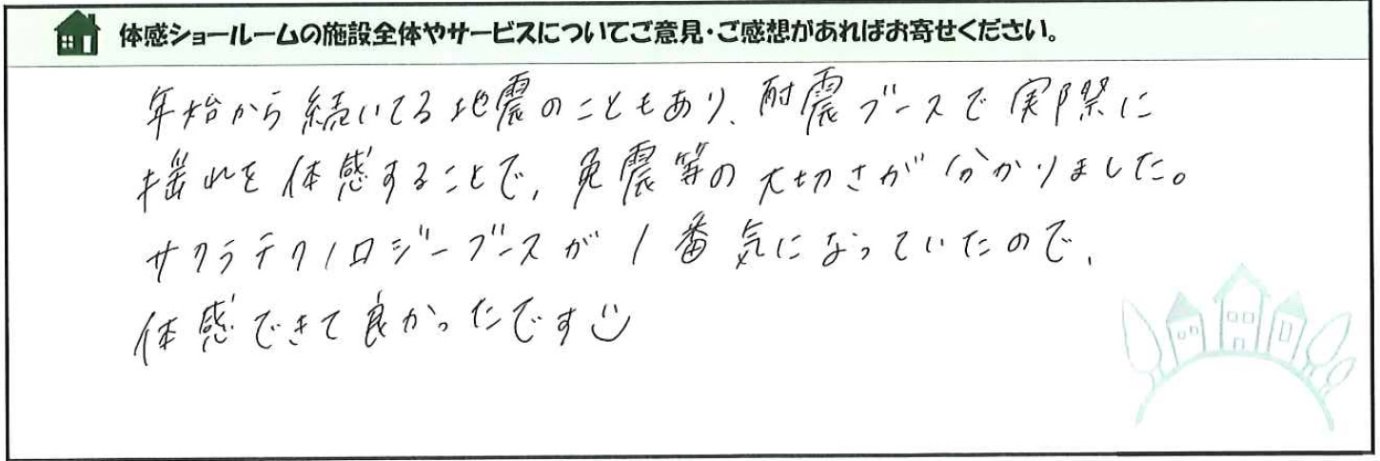 体感ショールームの施設全体やサービスについてご意見・ご感想があればお寄せください。
年始から続いてる地震のこともあり、耐震ブースで実際に
揺れを体感することで、免震等の大切さが分かりました。
サクラテクノロジーブースが1番気になっていたので、
体感できて良かったです